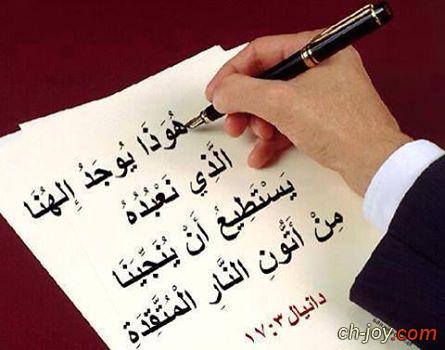 هُوَذَا يُوجَدُ إِلهُنَا
الَّذِي نَعْبُدُهُ
يَسْتَطِيعُ أَنْ يُنَجِّيَنَا
مِنْ أَتُّونِ النَّارِ الْمُتَّقِدَةِ
دانيال ٣:١٧
ch-joy.com